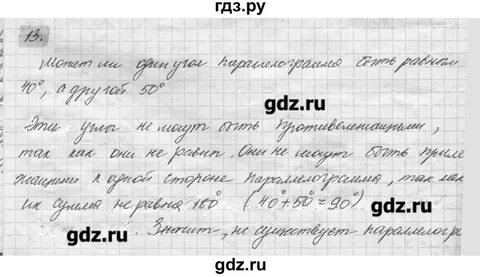 гдз.ру
13.
Может ли один угол параллелограмма быть равным
40°, а другой 50°
gdz.ru
Эти углы не могут быть противолежащими,
так как они не равны. Они не могут быть приле
жащими к одной стороне параллелограмма, так как
их сумма не равна 180° (40°+50°=90°)
gdz.ru gdz.ru
Значит, не существует параллелогр